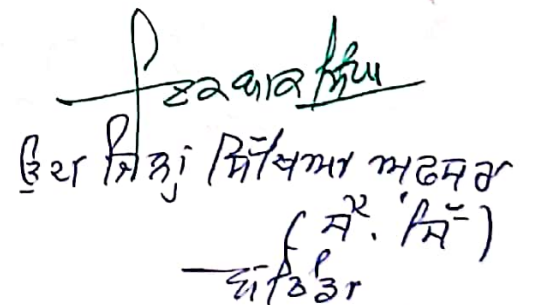 ਇਕਬਾਲ ਸਿੰਘ
ਉਪ ਜਿਲ੍ਹਾ ਸਿੱਖਿਆ ਅਫਸਰ
(ਸੈ. ਸਿੱ)
ਬਠਿੰਡਾ